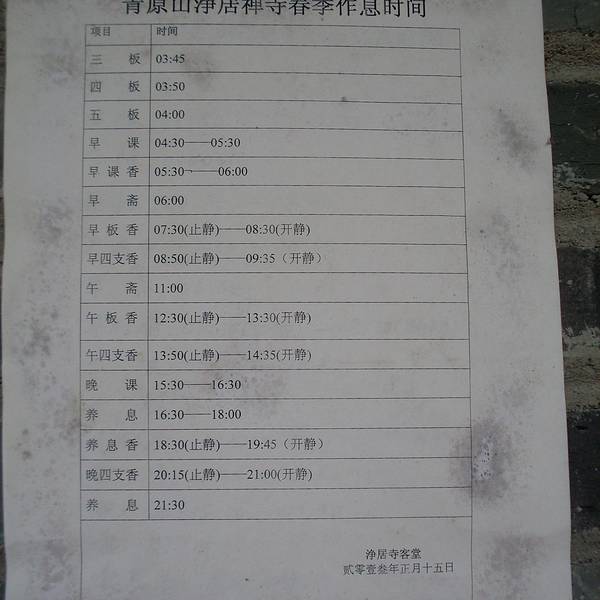 青原山净居禅寺春季作息时间
项目 时间
三 板 03:45
四 板 03:50
五 板 04:00
早 课 04:30——05:30
早 课 香 05:30——06:00
早 斋 06:00
早 板 香 07:30(止静)——08:30(开静)
早四支香 08:50(止静)——09:35（开静）
午 斋 11:00
午 板 香 12:30(止静)——13:30(开静)
午四支香 13:50(止静)——14:35(开静)
晚 课 15:30——16:30
养 息 16:30——18:00
养 息 香 18:30(止静)——19:45（开静）
晚四支香 20:15(止静)——21:00(开静)
养 息 21:30
净居寺客堂
贰零壹叁年正月十五日